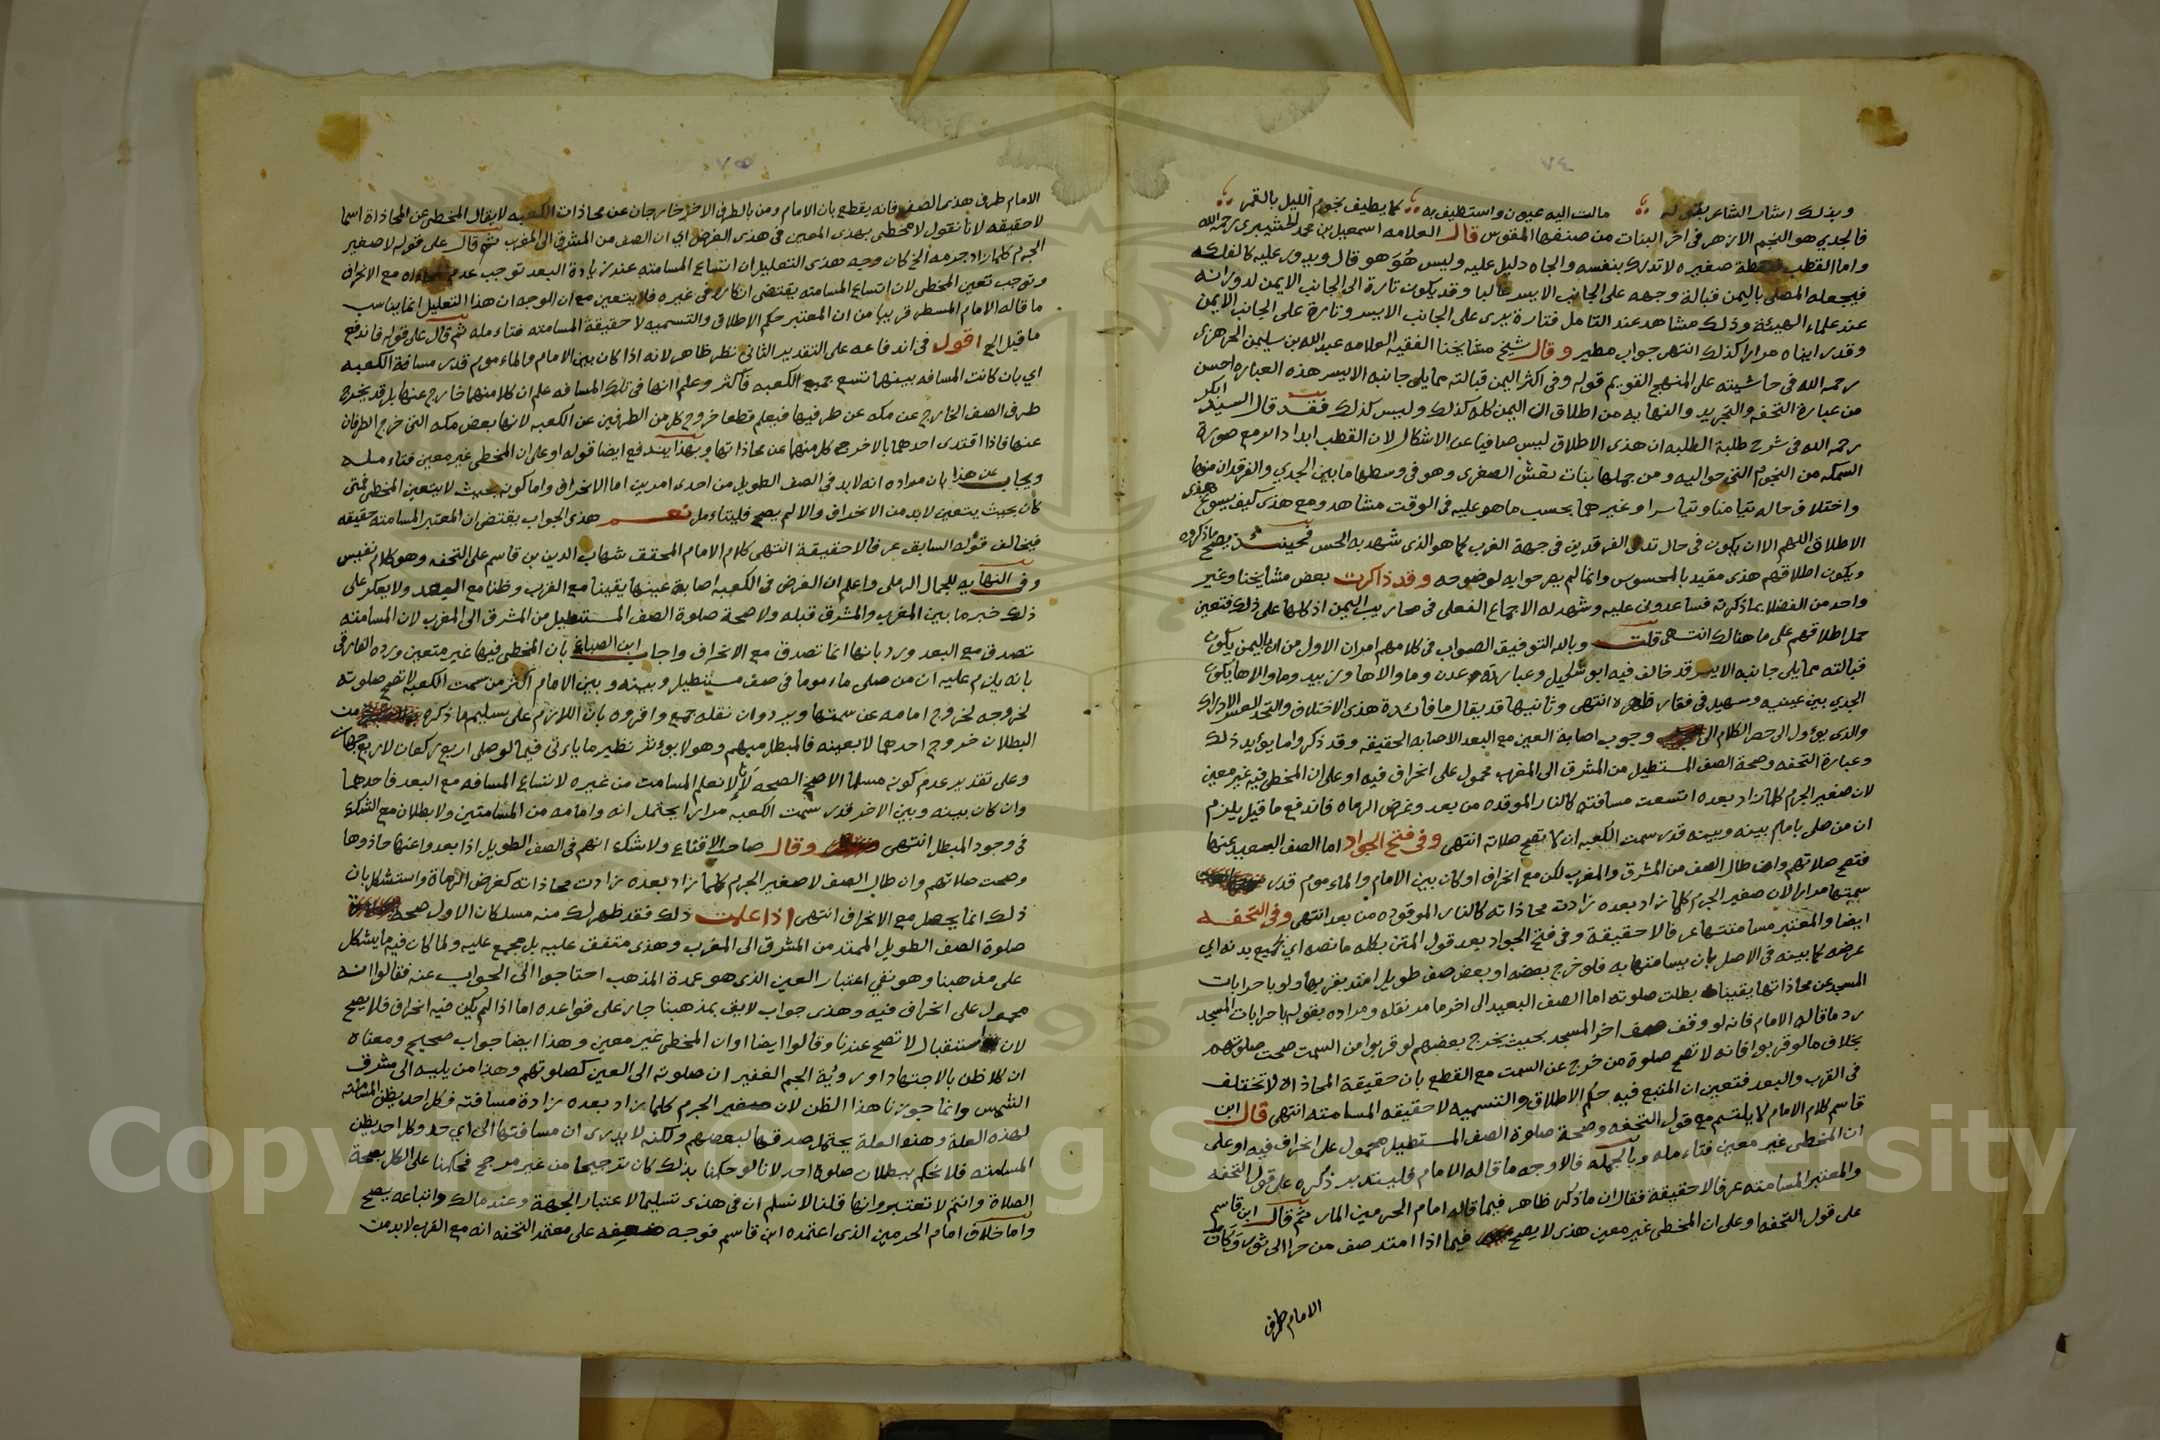 ٧٤
وبذلك اشار الشاعر بقوله مالت اليه عيون واستطيف به كما يطيف نجوم الليل بالقمر
فالجدي هو النجم الازهر في اخر البنات من صنفها المقوس قال العلامه اسمعيل بن محمد رحمه الله
واما القطب صغيره لا تدرك بنفسه والجاه دليل عليه وليس هُوَ هو قال ويدور عليه كالفلكه
فيجعله المصلي باليمن قبالة وجهه على الجانب الايسر غالبا وقد يكون تارة الى الجانب الايمن لدورانه
عند علماء الهيئة وذلك مشاهد عند التامل فتارة يرى على الجانب الايسر وتارة على الجانب الايمن
وقد رايناه مرارا كذلك انتهى جواب مطير وقال شيخ مشايخنا الفقيه العلامه عبد الله بن سليمن الجرهزي
رحمه الله في حاشيته على المنهج القويم قوله وفي اكثر اليمن قبالته مما يلي جانبه الايسر هذه العباره احسن
من عبارة التحفه والتجريد والنهايه من اطلاق ان اليمن كله كذلك وليس كذلك فقد قال السيد ابكر
رحمه الله في شرح طلبة الطلبه ان هذى الاطلاق ليس صافيا عن الاشكال لان القطب ابدا دائر مع صورة
السمكه من النجوم التي حواليه ومن جملها بنات نعش الصغرى وهو في وسطها ما بين الجدي والفرقدان منها
واختلاف حاله تيامنا وتياسرا وغيرهما بحسب ما هو عليه في الوقت مشاهد ومع هذى كيف يسوغ هذى
الاطلاق اللهم الا ان يكون في حال تدلي الفرقدين في جهة الغرب كما هو الذى شهد به الحس فحينئذ يصح ما ذكروه
ويكون اطلاقهم هذى مقيد بالمحسوس وانما لم يصرحوا به لوضوحه وقد ذاكرت بعض مشايخنا وغير
واحد من الفضلا بما ذكرته فساعدوني عليه وشهد له الاجماع الفعلي في محاريب اليمن اذ كلها على ذلك فتعين
حمل اطلاقهم على ما هنالك انتهى قلت وبالله التوفيق الصواب في كلامهم امران الاول من ان باليمن يكون
قبالته مما يلي جانبه الايسر قد خالف فيه ابو شكيل وعبارته وعدن وما والاها وزبيد وما والاها يكون
الجدي بين عينيه وسهيل في فقار ظهره انتهى وثانيها قد يقال ما فائدة هذى الاختلاف
والذى يؤول الى حصر الكلام الى وجوب اصابة العين مع البعد الاصابه الحقيقه وقد ذكروا ما يؤيد ذلك
وعبارة التحفه وصحة الصف المستطيل من المشرق الى المغرب محمول على انحراف فيه او على ان المخطي فيه غير معين
لان صغير الجرم كلما زاد بعده اتسعت مسافته كالنار الموقده من بعد وغرض الرماه فاندفع ما قيل يلزم
ان من صلى بامام بينه وبينه قدر سمت الكعبه ان لا تصح صلاته انتهى وفي فتح الجواد اما الصف البعيد عنها
فتصح صلاتهم وان طال الصف من المشرق والمغرب لكن مع انحراف او كان بين الامام والماءموم قدر
سمتها مرارا لان صغير الجرم كلما زاد بعده زادت محاذاته كالنار الموقوده من بعد انتهى وفي التحفه
ايضا والمعتبر مسامتتها عرفا لا حقيقة وفي فتح الجواد بعد قول المتن بكله ما نصه اي بجميع بدنه اي
عرضه كما بينه في الاصل بان يسامتها به فلو خرج بعضه او بعض صف طويل امتد بقربها ولو باخرابات
المسجد عن محاذاتها يقينا بطلت صلوته اما الصف البعيد الى اخر ما مر نقله ومراده بقوله باخرابات المسجد
رد ما قاله الامام فانه لو وقف صف اخر المسجد بحيث يخرج بعضهم لو قربوا من السمت صحت صلوتهم
بخلاف ما لو قربوا فانه لا تصح صلوة من خرج عن السمت مع القطع بان حقيقة المحاذاه لا تختلف
في القرب والبعد فتعين ان المتبع فيه حكم الاطلاق والتسميه لا حقيقه المسامته انتهى قال ابن
قاسم كلام الامام لا يلتئم مع قول التحفه وصحة صلوة الصف المستطيل محمول على انحراف فيه او على
ان المخطي غير معين فتاءمله وبالجمله فالاوجه ما قاله الامام فليتدبر ذكره على قول التحفه
والمعتبر المسامته عرفا لا حقيقة فقال ان ما ذكر ظاهر فيما قاله امام الحرمين المار ثم قال ابن قاسم
على قول التحفه او على ان المخطي غير معين هذى لا يصح فيما اذا امتد صف من حرا الى ثور وكان
الامام طرف
٧٥
الامام طرف هذى الصف فانه يقطع بان الامام ومن بالطرف الاخر خارجان عن محاذات الكعبه لا يقال المخطي عن المحاذاة اسما
لا حقيقه لانا نقول لا مخطي بهذى المعين في هذى الفرض اي ان الصف من المشرق الى المغرب ثم قال على قوله لا صغير
الجرم كلما زاد جرمه الخ كان وجه هذى التعليل ان اتساع المسامته عند زيادة البعد توجب عدم مع الانحراف
وتوجب تعين المخطي لان اتساع المسامته يقتضي انكاره في غيره فلا يتعين مع ان الوجه ان هذا التعليل انما يناسب
ما قاله الامام المسطر قريبا من ان المعتبر حكم الاطلاق والتسميه لا حقيقة المسامته فتاءمله ثم قال على قوله فاندفع
ما قيل الخ اقول في اندفاعه على التقدير الثاني نظر ظاهر لانه اذا كان بين الامام والماءموم قدر مسافة الكعبه
اي بان كانت المسافه بينهما تسع جميع الكعبه فاكثر وعلم انها في تلك المسافه علم ان كلا منهما خارج عنها بل قد يخرج
طرف الصف الخارج عن مكه عن طرفيها فيعلم قطعا خروج كل من الطرفين عن الكعبه لانها بعض مكه التي خرج الطرفان
عنها فاذا اقتدى احدهما بالاخر مع كل منهما عن محاذاتها وبهذا يندفع ايضا قوله او على ان المخطي غير معين فتاءمله
ويجاب عن هذا بان مراده انه لا بد في الصف الطويل من احدى امرين اما الانحراف واما كونه بحيث لا يتعين المخطي فمتى
كان بحيث يتعين لا بد من الانحراف والا لم يصح فليتاءمل نعم هذى الجواب يقتضي ان المعتبر المسامته حقيقه
فيخالف قوله السابق عرفا لا حقيقة انتهى كلام الامام المحقق شهاب الدين بن قاسم على التحفه وهو كلام نفيس
وفي النهايه للجمال الرملي واعلم ان الفرض في الكعبه اصابة عينها يقينا مع القرب وظنا مع البعد ولا يعكر على
ذلك خبر ما بين المغرب والمشرق قبله ولا صحة صلوة الصف المستطيل من المشرق الى المغرب لان المسامته
تصدق مع البعد ورد بانها انما تصدق مع الانحراف واجاب ابن الصباغ بان المخطي فيها غير متعين ورده الفارقي
بانه يلزم عليه ان من صلى ماءموما في صف مستطيل وبينه وبين الامام اكثر من سمت الكعبه لا تصح صلوته
لخروجه لخروج امامه عن سمتها ويرد وان نقله جمع واقروه بان اللازم على تسليم ما ذكره من
البطلان خروج احدهما لا بعينه فالمبطل مبهم وهو لا يؤثر نظير ما ياءتي فيما لو صلى اربع ركعات لاربع جهات
وعلى تقدير عدم كونه مسلما الاصح الصحه لانا لا نعلم المسامت من غيره لاتساع المسافه مع البعد فاحدهما
وان كان بينه وبين الاخر قدر سمت الكعبه مرارا يحتمل انه وامامه من المسامتين ولا بطلان مع الشك
في وجود المبطل انتهى وقال صاحب الاقناع ولا شك انهم في الصف الطويل اذا بعدوا عنها حاذوها
وصحت صلاتهم وان طال الصف لا صغير الجرم كلما زاد بعده زادت محاذاته كغرض الرماة واستشكل بان
ذلك انما يحصل مع الانحراف انتهى اذا علمت ذلك فقد ظهر لك منه مسلكان الاول صحة
صلوة الصف الطويل الممتد من المشرق الى المغرب وهذى متفق عليه بل مجمع عليه ولما كان فيه ما يشكل
على مذهبنا وهو نفي اعتبار العين الذى هو عمدة المذهب احتاجوا الى الجواب عنه فقالوا انه
محمول على انحراف فيه وهذى جواب لايق بمذهبنا جار على قواعده اما اذا لم يكن فيه انحراف فلا يصح
لان استقبال لا تصح عندنا وقالوا ايضا او ان المخطي غير معين وهذا ايضا جواب صحيح ومعناه
ان كلا ظن بالاجتهاد او رؤية الجم الغفير ان صلوته الى العين كصلوتهم وهذا من يليه الى مشرق
الشمس وانما جوزنا هذا الظن لان صغير الجرم كلما زاد بعده زادة مسافته فكل احد يظن المسامتة
لهذه العلة وهذه العلة يحتمل صدقها لبعضهم ولكنه لا يدرى ان مسافتها الى اي حد وكل احد يظن
المسامته فلا نحكم ببطلان صلوة احد لانا لو حكمنا بذلك كان ترجيحا من غير مرجح فحكمنا على الكل بصحة
الصلاة وانتم لا تعتبروانها قلنا لا نسلم ان في هذى تسليما لاعتبار الجهة وعند مالك واتباعه يصح
واما خلاف امام الحرمين الذى اعتمده ابن قاسم فوجه ضعفه على معتمد التحفه انه مع القرب لا بد من
Copyright © King Saud University